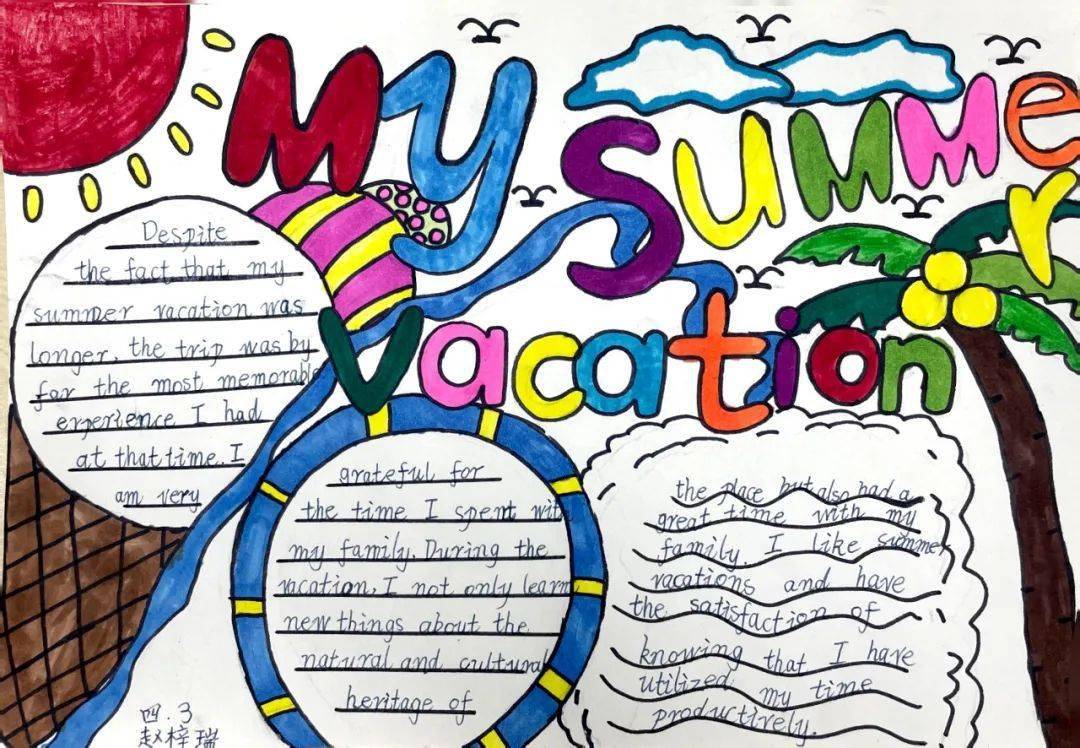 My Summer
Vacation
Despite
the fact that my
summer vacation was
longer, the trip was by
far the most memorable
experience I had
at that time. I
am very
grateful for
the time I spent wit
my family. During the
vacation, I not only learn
new things about the
natural and cultural
heritage of
the place but also had a
great time with my
family. I like summer
vacations and have
the satisfaction of
knowing that I have
utilized my time
productively.
四.3
赵梓瑞